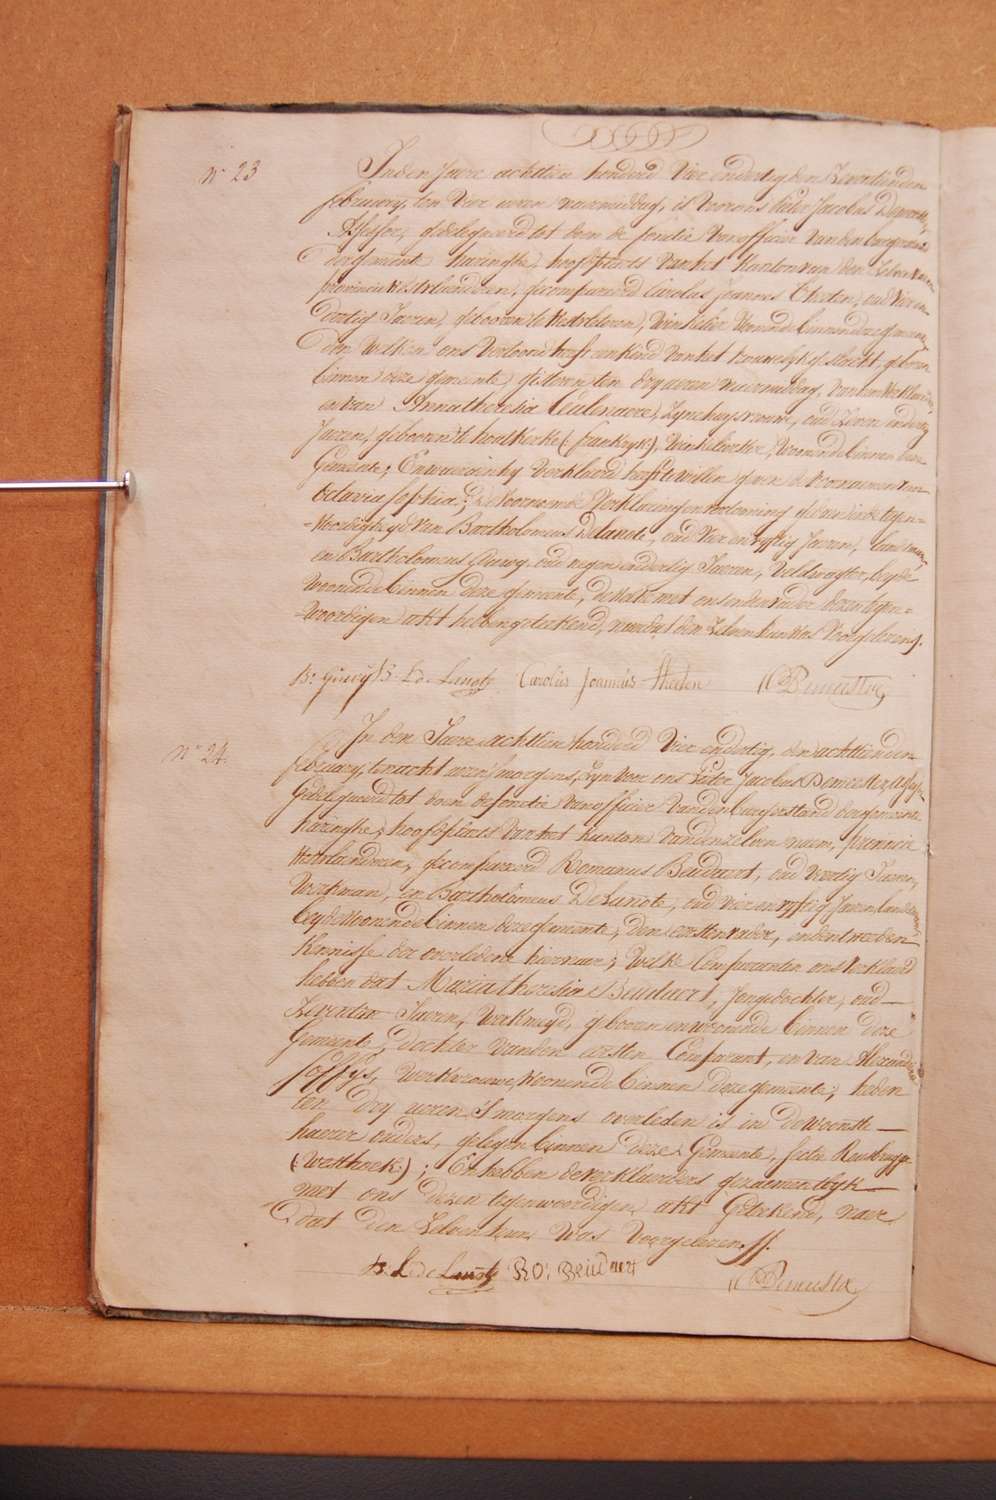 N° 23
In den Jaere achttien honderd vier endertig den Zeventienden
february, ten vier uren naermiddag, is voor ons Pieter Jacobus Demeester,
Assessor, gedelegueerd tot doen de fonctie van officier van den burgerstand
der gemeente haringhe, hoofdplaets van het kanton van den zelven naem
provincie Westvlaenderen, gecompareerd Carolus Joannes Theeten, oud vier en
dertig Jaeren, gebooren te Westvleteren, winkelier woonende binnen deze gemeente,
den welken ons vertoond heeft een kind van het vrouwelyk geslacht, geboren
binnen deze gemeente, gisteren ten dry uren naermiddag, van hem verklaerder,
en van Anna theresia Ceulenaere, zyne huysvrouw, oud zeven en dertig
Jaeren, gebooren te houtkerke (frankryk), winkelierster, woonende binnen deze
Gemeente; En waeraen hy verklaerd heeft te willen geven de voornamen van
Octavia sophia; de voornoemde verklaering en vertooning gedaen in de tegen=
=woordigheyd van Bartholomeus Delanote, oud vier en vyftig Jaeren, landsman,
en Bartholomeus Gheuwy oud negen en dertig Jaeren, veldwagter, beyde
woonende binnen deze gemeente, de welke met ons en den vader dezen tegen=
=woordigen akt hebben geteekend, naer dat den zelven hun was voorgelezen.
B: Guwy B. L de Lanotz Carolus Joannes Theeten P J Demeester
N° 24.
In den Jaere achttien honderd vier endertig, den achttienden
february, ten acht uren 's morgens, zyn voor ons Pieter Jacobus Demeester, assessor
Gedelegueerd tot doen de fonctie van officier van den burgerstand der gemeente
haringhe, hoofdplaets van het kanton van den zelven naem, provincie
Westvlaenderen, gecompareerd Romanus Beudaert, oud veertig Jaeren,
Werkman, en Bartholomeus Delanote, oud vier en vyftig Jaeren, landsman,
beyde woonende binnen deze gemeente, den eersten vader, en den tweeden
kennisse der overledene hiernaer; Welke Comparanten ons verklaerd
hebben dat Maria theresia Beudaert, Jongedochter, oud —
Zeventien Jaeren, Werkmeyd, gebooren en woonende binnen deze
Gemeente, dochter van den eersten Comparant, en van Alexandrina
soffys, werkvrouwe, woonende binnen deze gemeente, heden
ten dry uren 's morgens overleden is in de woonste —
haerer ouders, gelegen binnen deze Gemeente, sectie Rousbrugge
(Westhoek); En hebben de verklaerders gezamentlyk —
met ons dezen tegenwoordigen akt Geteekend, naer
dat den zelven hun was voorgelezen.
B. L de Lanotz RO: Beudaert P J Demeester